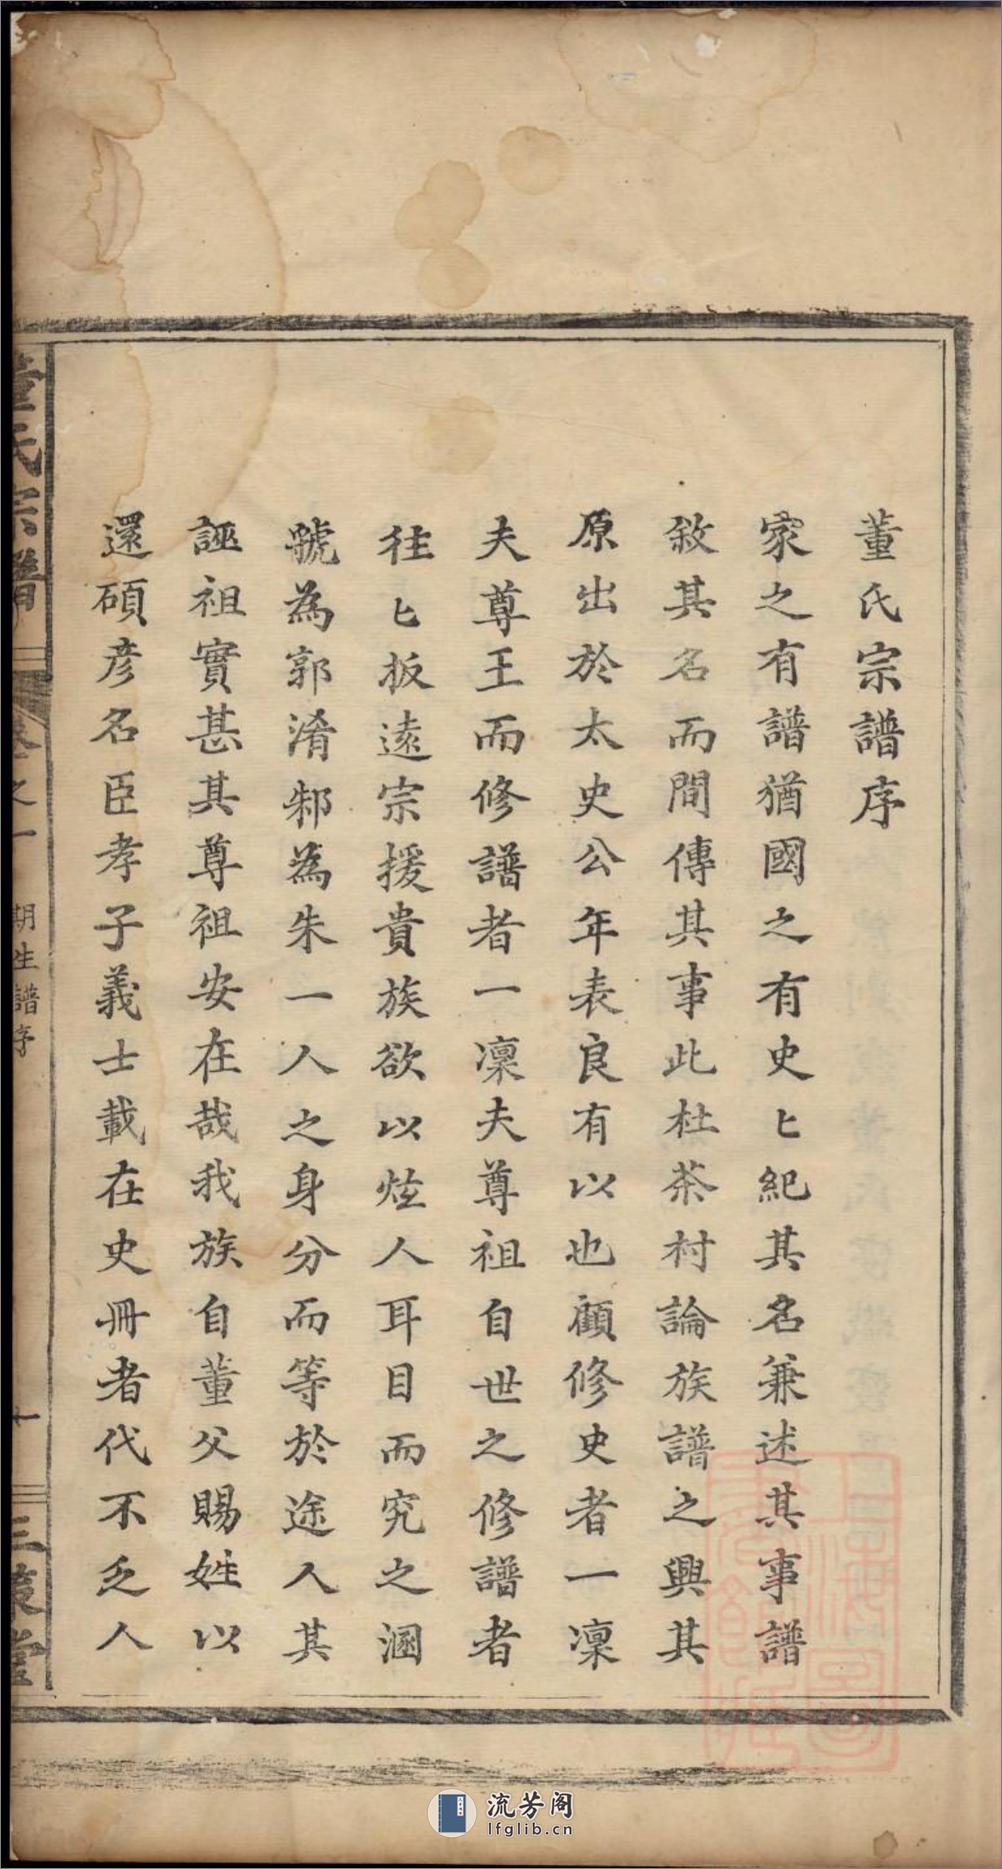 董氏宗譜序
家之有譜猶國之有史匕紀其名兼述其事譜
敘其名而間傳其事此杜茶村論族譜之興其
原出於太史公年表良有以也顧修史者一凜
夫尊王而修譜者一凜夫尊祖自世之修譜者
往匕扳遠宗援貴族欲以炫人耳目而究之溷
號為郭淆邾為朱一人之身分而等於途人其
誣祖實甚其尊祖安在哉我族自董父賜姓以
還碩彥名臣孝子義士載在史冊者代不乏人
董氏宗譜
卷之一
期生譜序
一
三策堂
上海圖書館藏
流芳阁
lfglib.cn